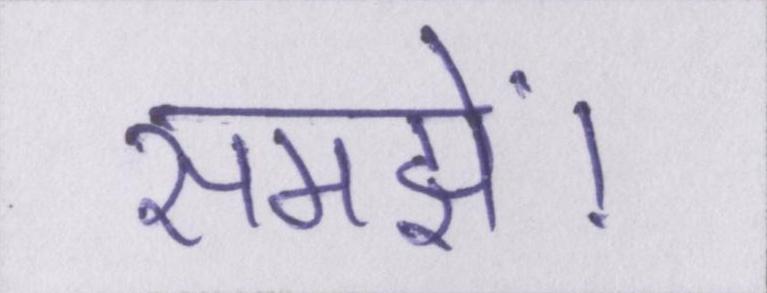 समझें!